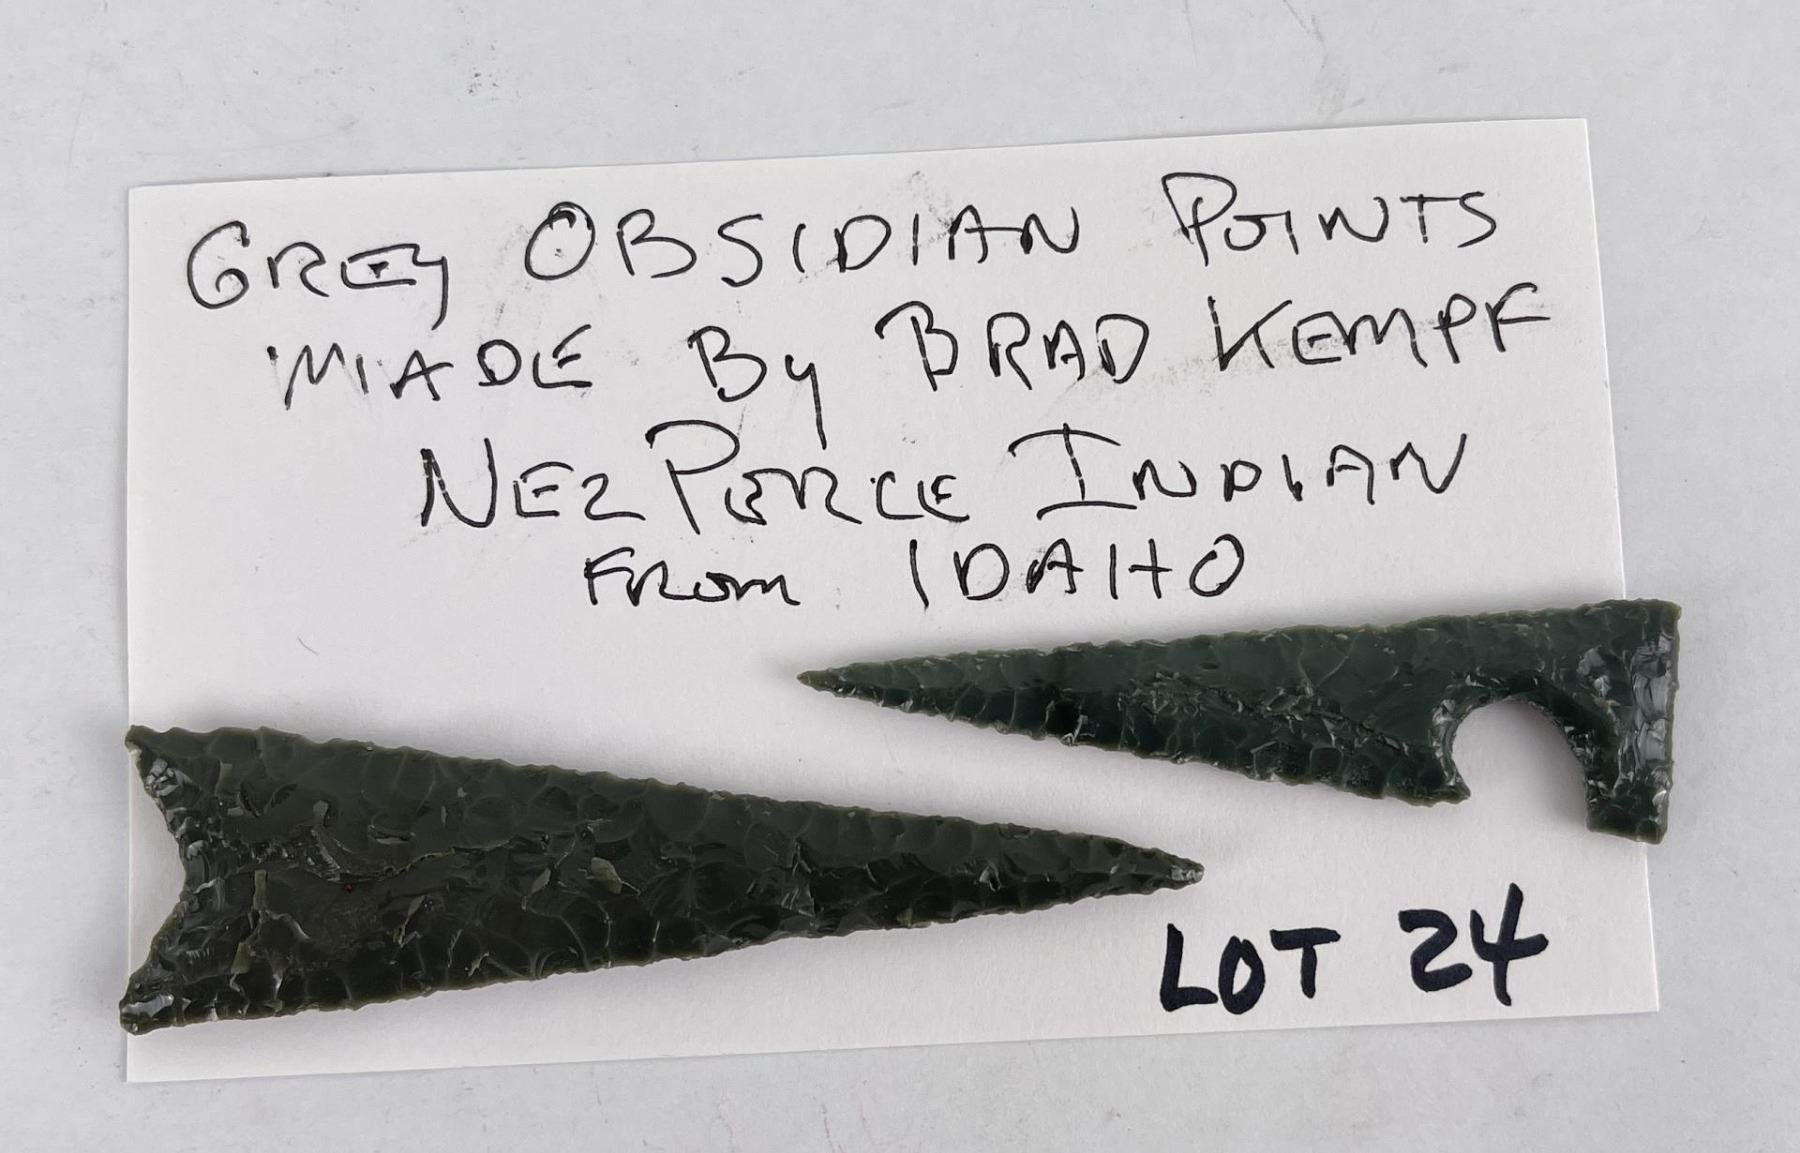 GREY OBSIDIAN POINTS
MADE By BRAD KEMPF
NEZ PERCE INDIAN
FROM IDAHO
LOT 24